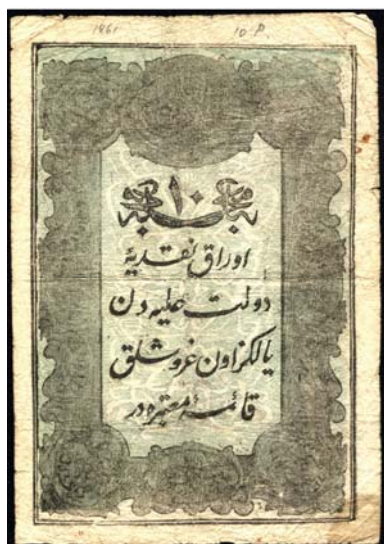 1861 10 P.
١٠
اوراق نقدیۀ
دولت علیه دن
یالکز اون غروشلق
قائمۀ معتبره در